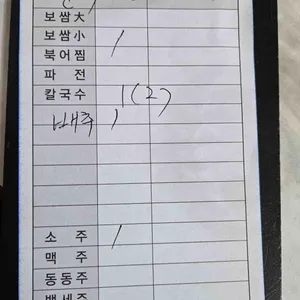 보쌈大
보쌈小 /
북어찜
파 전
칼국수 1(2)
배추 /
소 주 /
맥 주
동동주
백세주